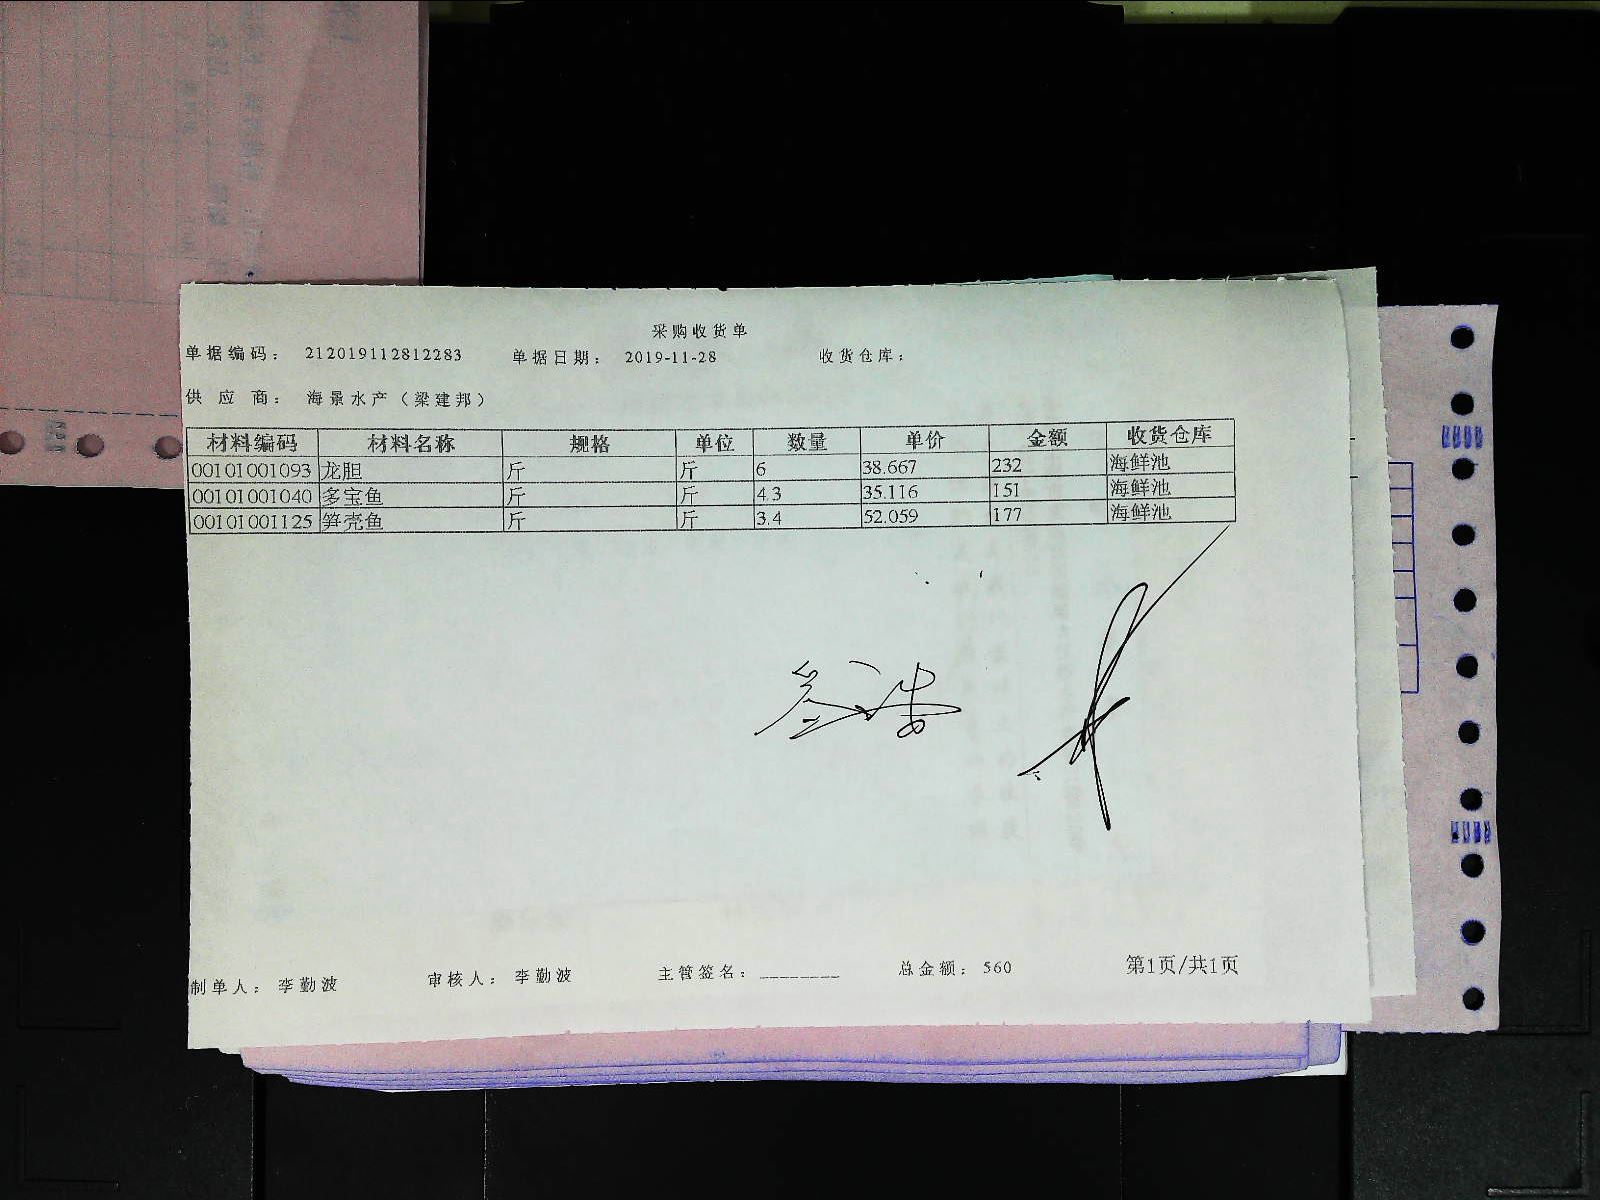 采购收货单
单据编码： 212019112812283 单据日期： 2019-11-28 收货仓库：
供应商： 海景水产（梁建邦）
材料编码 材料名称 规格 单位 数量 单价 金额 收货仓库
00101001093 龙胆 斤 斤 6 38.667 232 海鲜池
00101001040 多宝鱼 斤 斤 4.3 35.116 151 海鲜池
00101001125 笋壳鱼 斤 斤 3.4 52.059 177 海鲜池
制单人： 李勤波 审核人： 李勤波 主管签名：________ 总金额： 560 第1页/共1页